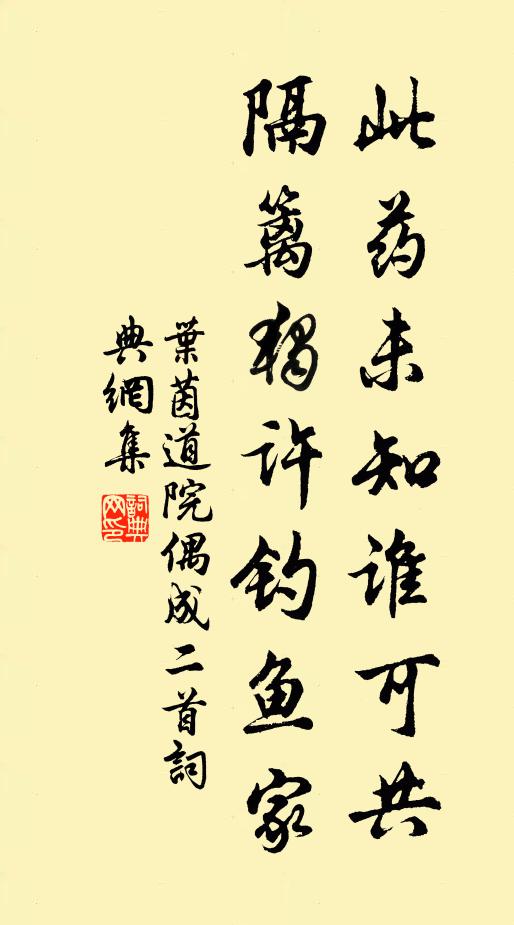 此药未知谁可共
隔篱独许钓鱼家
葉茵道院偶成二首詞
典網集
詞典網印